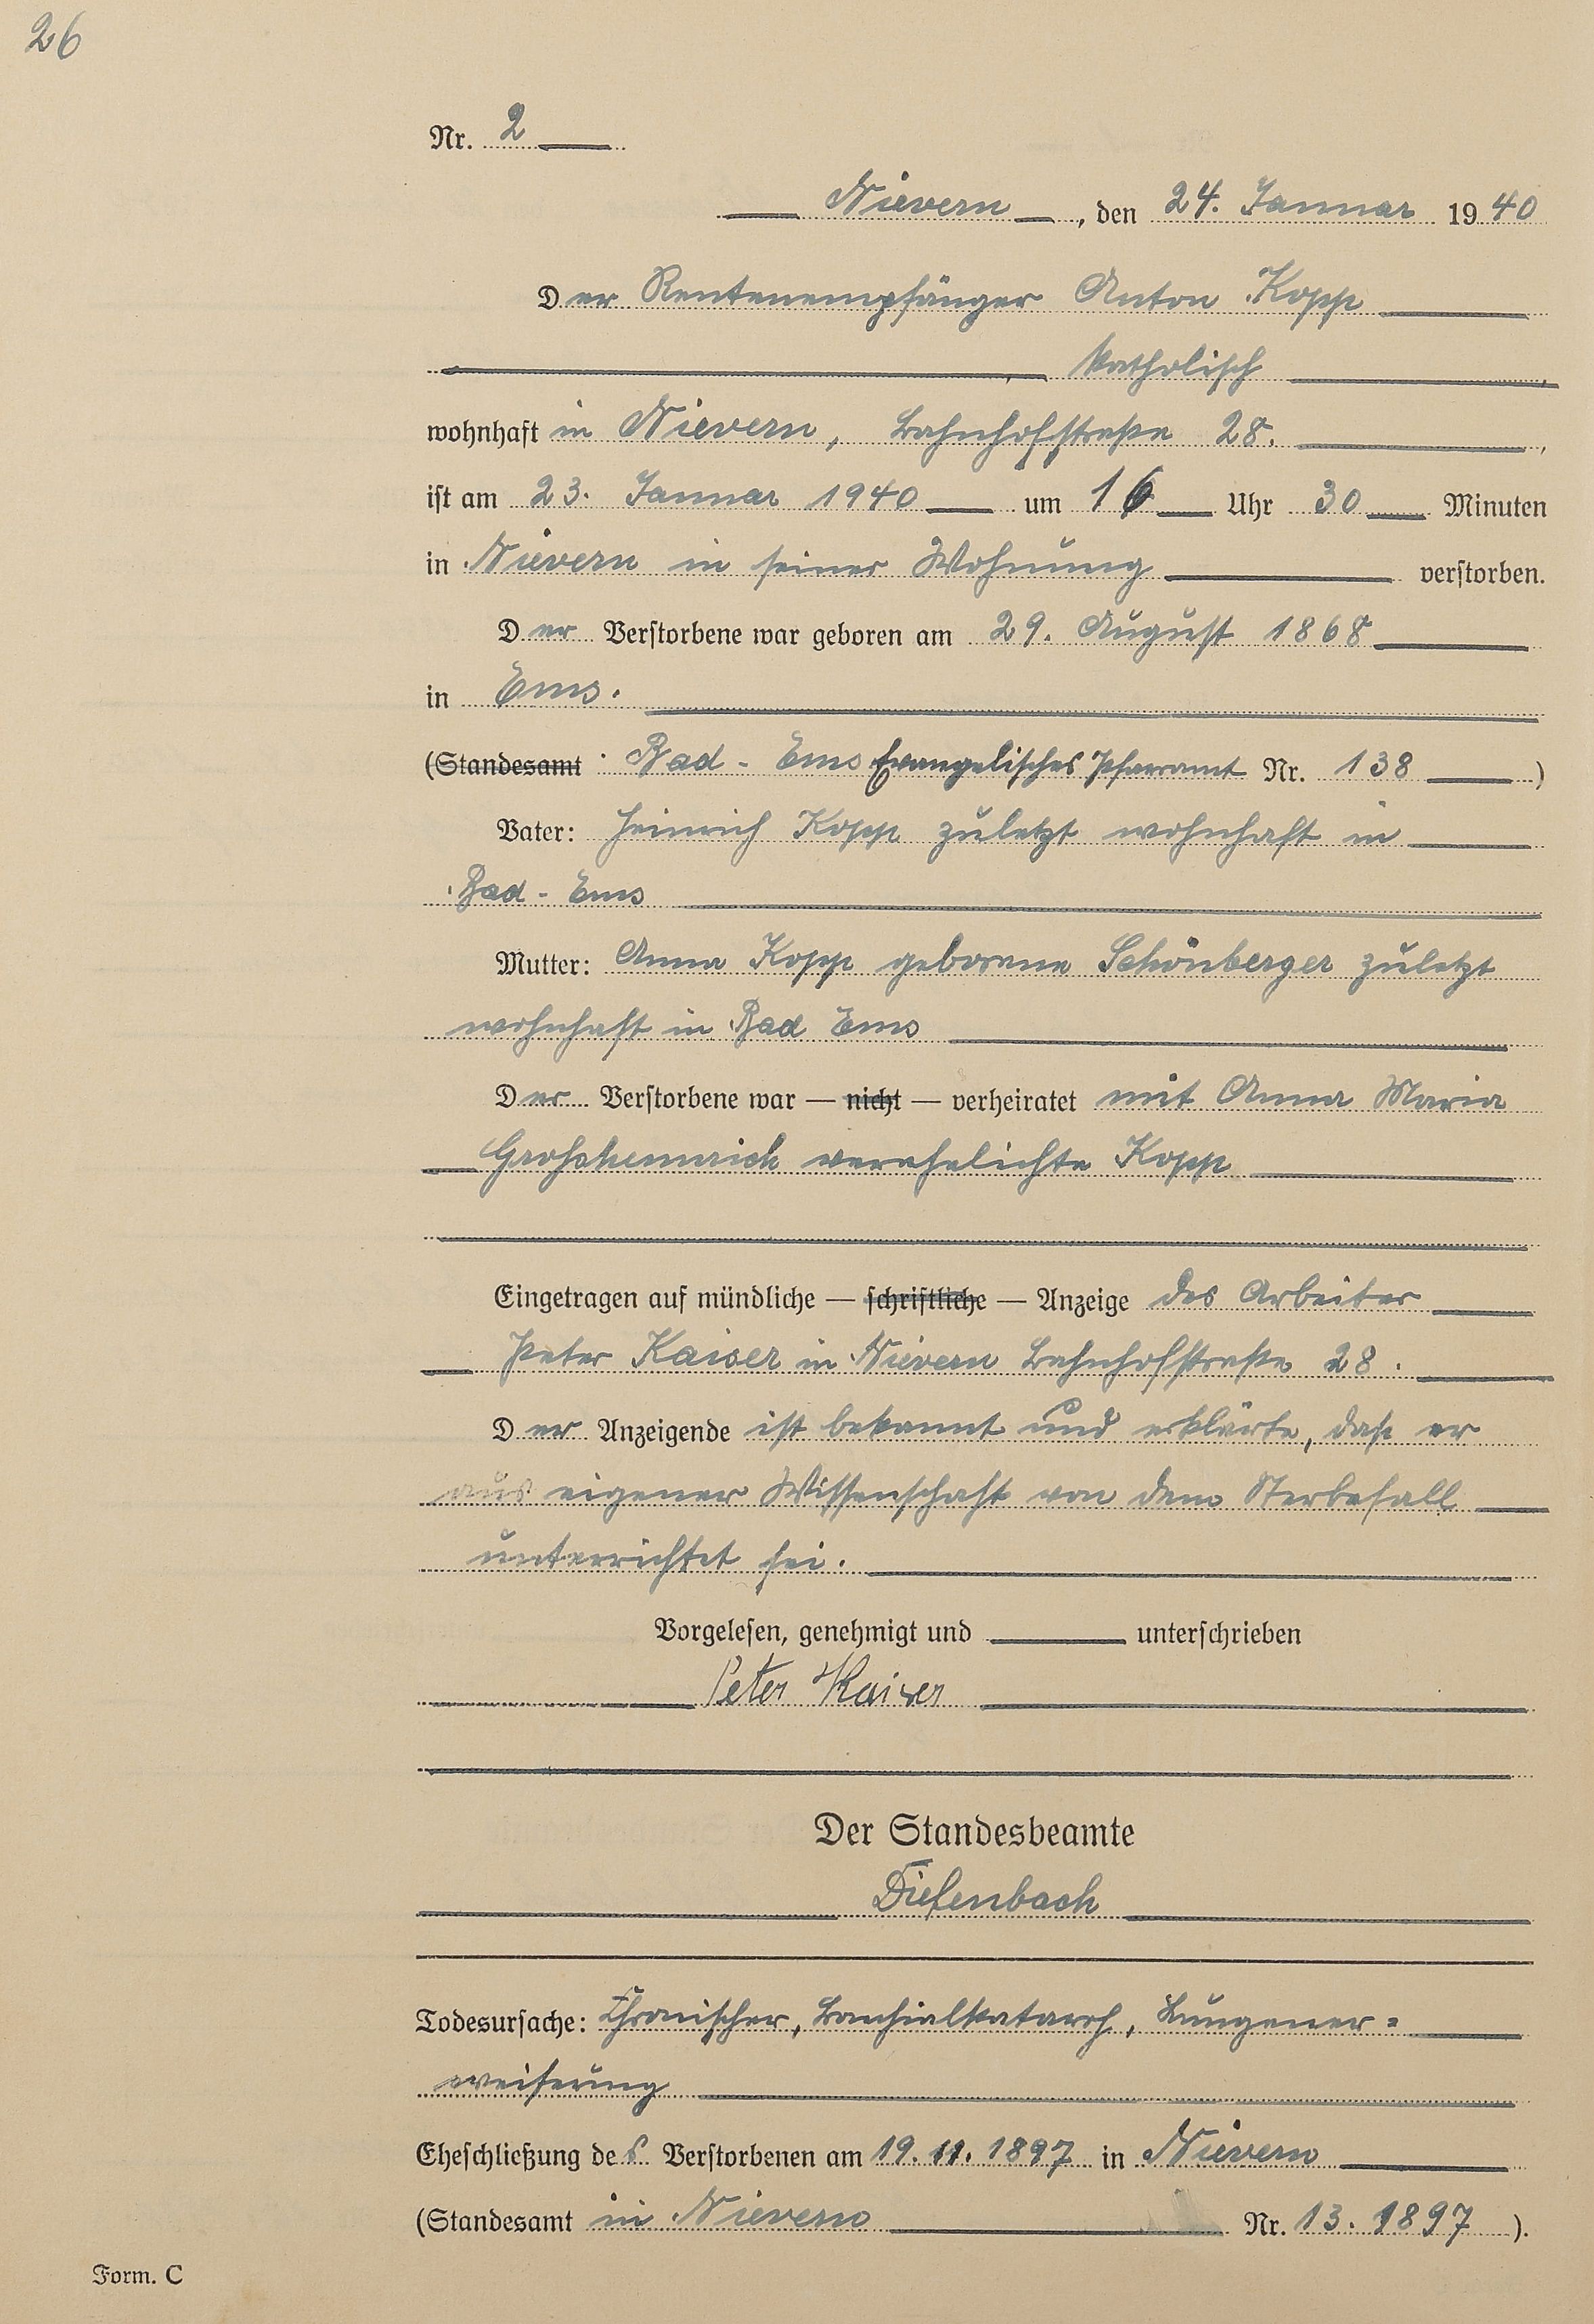 26
Nr. 2
Nievern, den 24. Januar 1940
Der Rentenempfänger Anton Kopp
katholisch,
wohnhaft in Nievern, Bahnhofstraße 28.,
ist am 23. Januar 1940 um 16 Uhr 30 Minuten
in Nievern in seiner Wohnung verstorben.
Der Verstorbene war geboren am 29. August 1868
in Ems.
(Standesamt Bad-Ems Evangelisches Pfarramt Nr. 138)
Vater: Heinrich Kopp zuletzt wohnhaft in
Bad-Ems
Mutter: Anna Kopp geborene Schönberger zuletzt
wohnhaft in Bad Ems
Der Verstorbene war — nicht — verheiratet mit Anna Maria
verehelichte Kopp
Eingetragen auf mündliche — schriftliche — Anzeige des Arbeiter
Peter Kaiser in Nievern Bahnhofstraße 28.
Der Anzeigende ist bekannt und erklärte, daß er
aus eigener Wissenschaft von dem Sterbefall
unterrichtet sei.
Vorgelesen, genehmigt und unterschrieben
Peter Kaiser
Der Standesbeamte
Diefenbach
Todesursache: Chronischer, Bronchialkatarrh, Lungener=
weiterung
Eheschließung des Verstorbenen am 19. 11. 1897 in Nievern
(Standesamt in Nievern Nr. 13. 1897).
Form. C